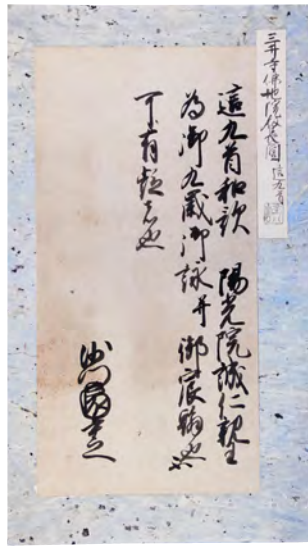 三井寺佛地院役長圓 這九首
這九首和歌　陽光院誠仁親王
為御九歳御詠并御宸翰也
可有疑者也